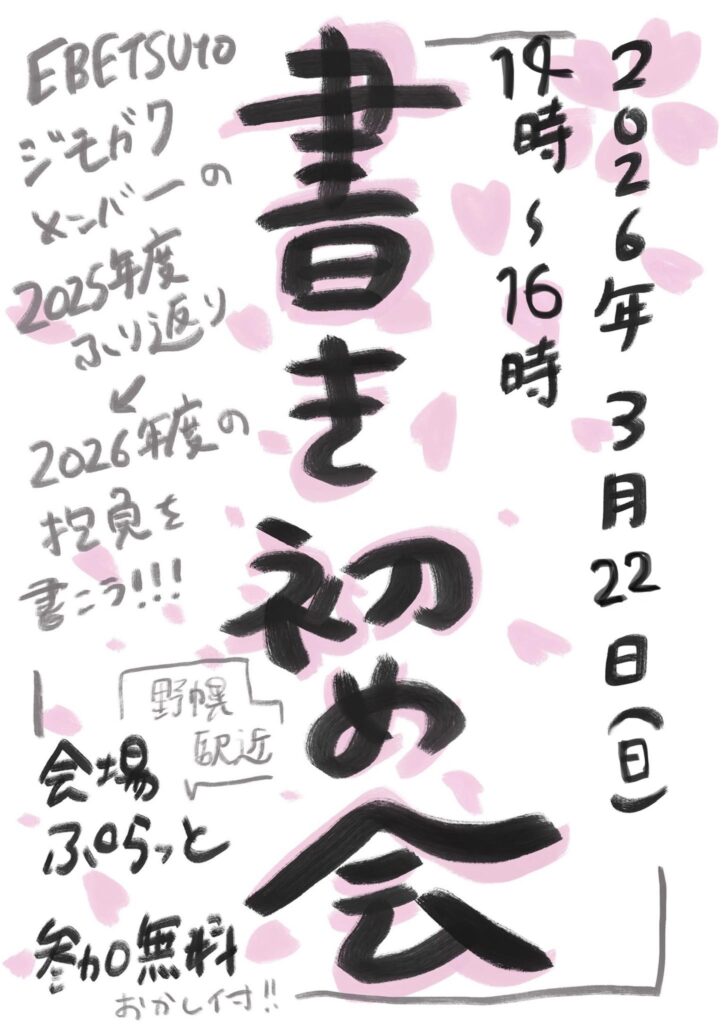 2026年 3月 22日(日)
14時~16時
書き初め会
EBETSUTO
ジモガク
メンバーの
2025年度
ふり返り
↙
2026年度の
抱負を
書こう!!!
野幌
駅近
会場
ぷらっと
参加無料
おかし付!!